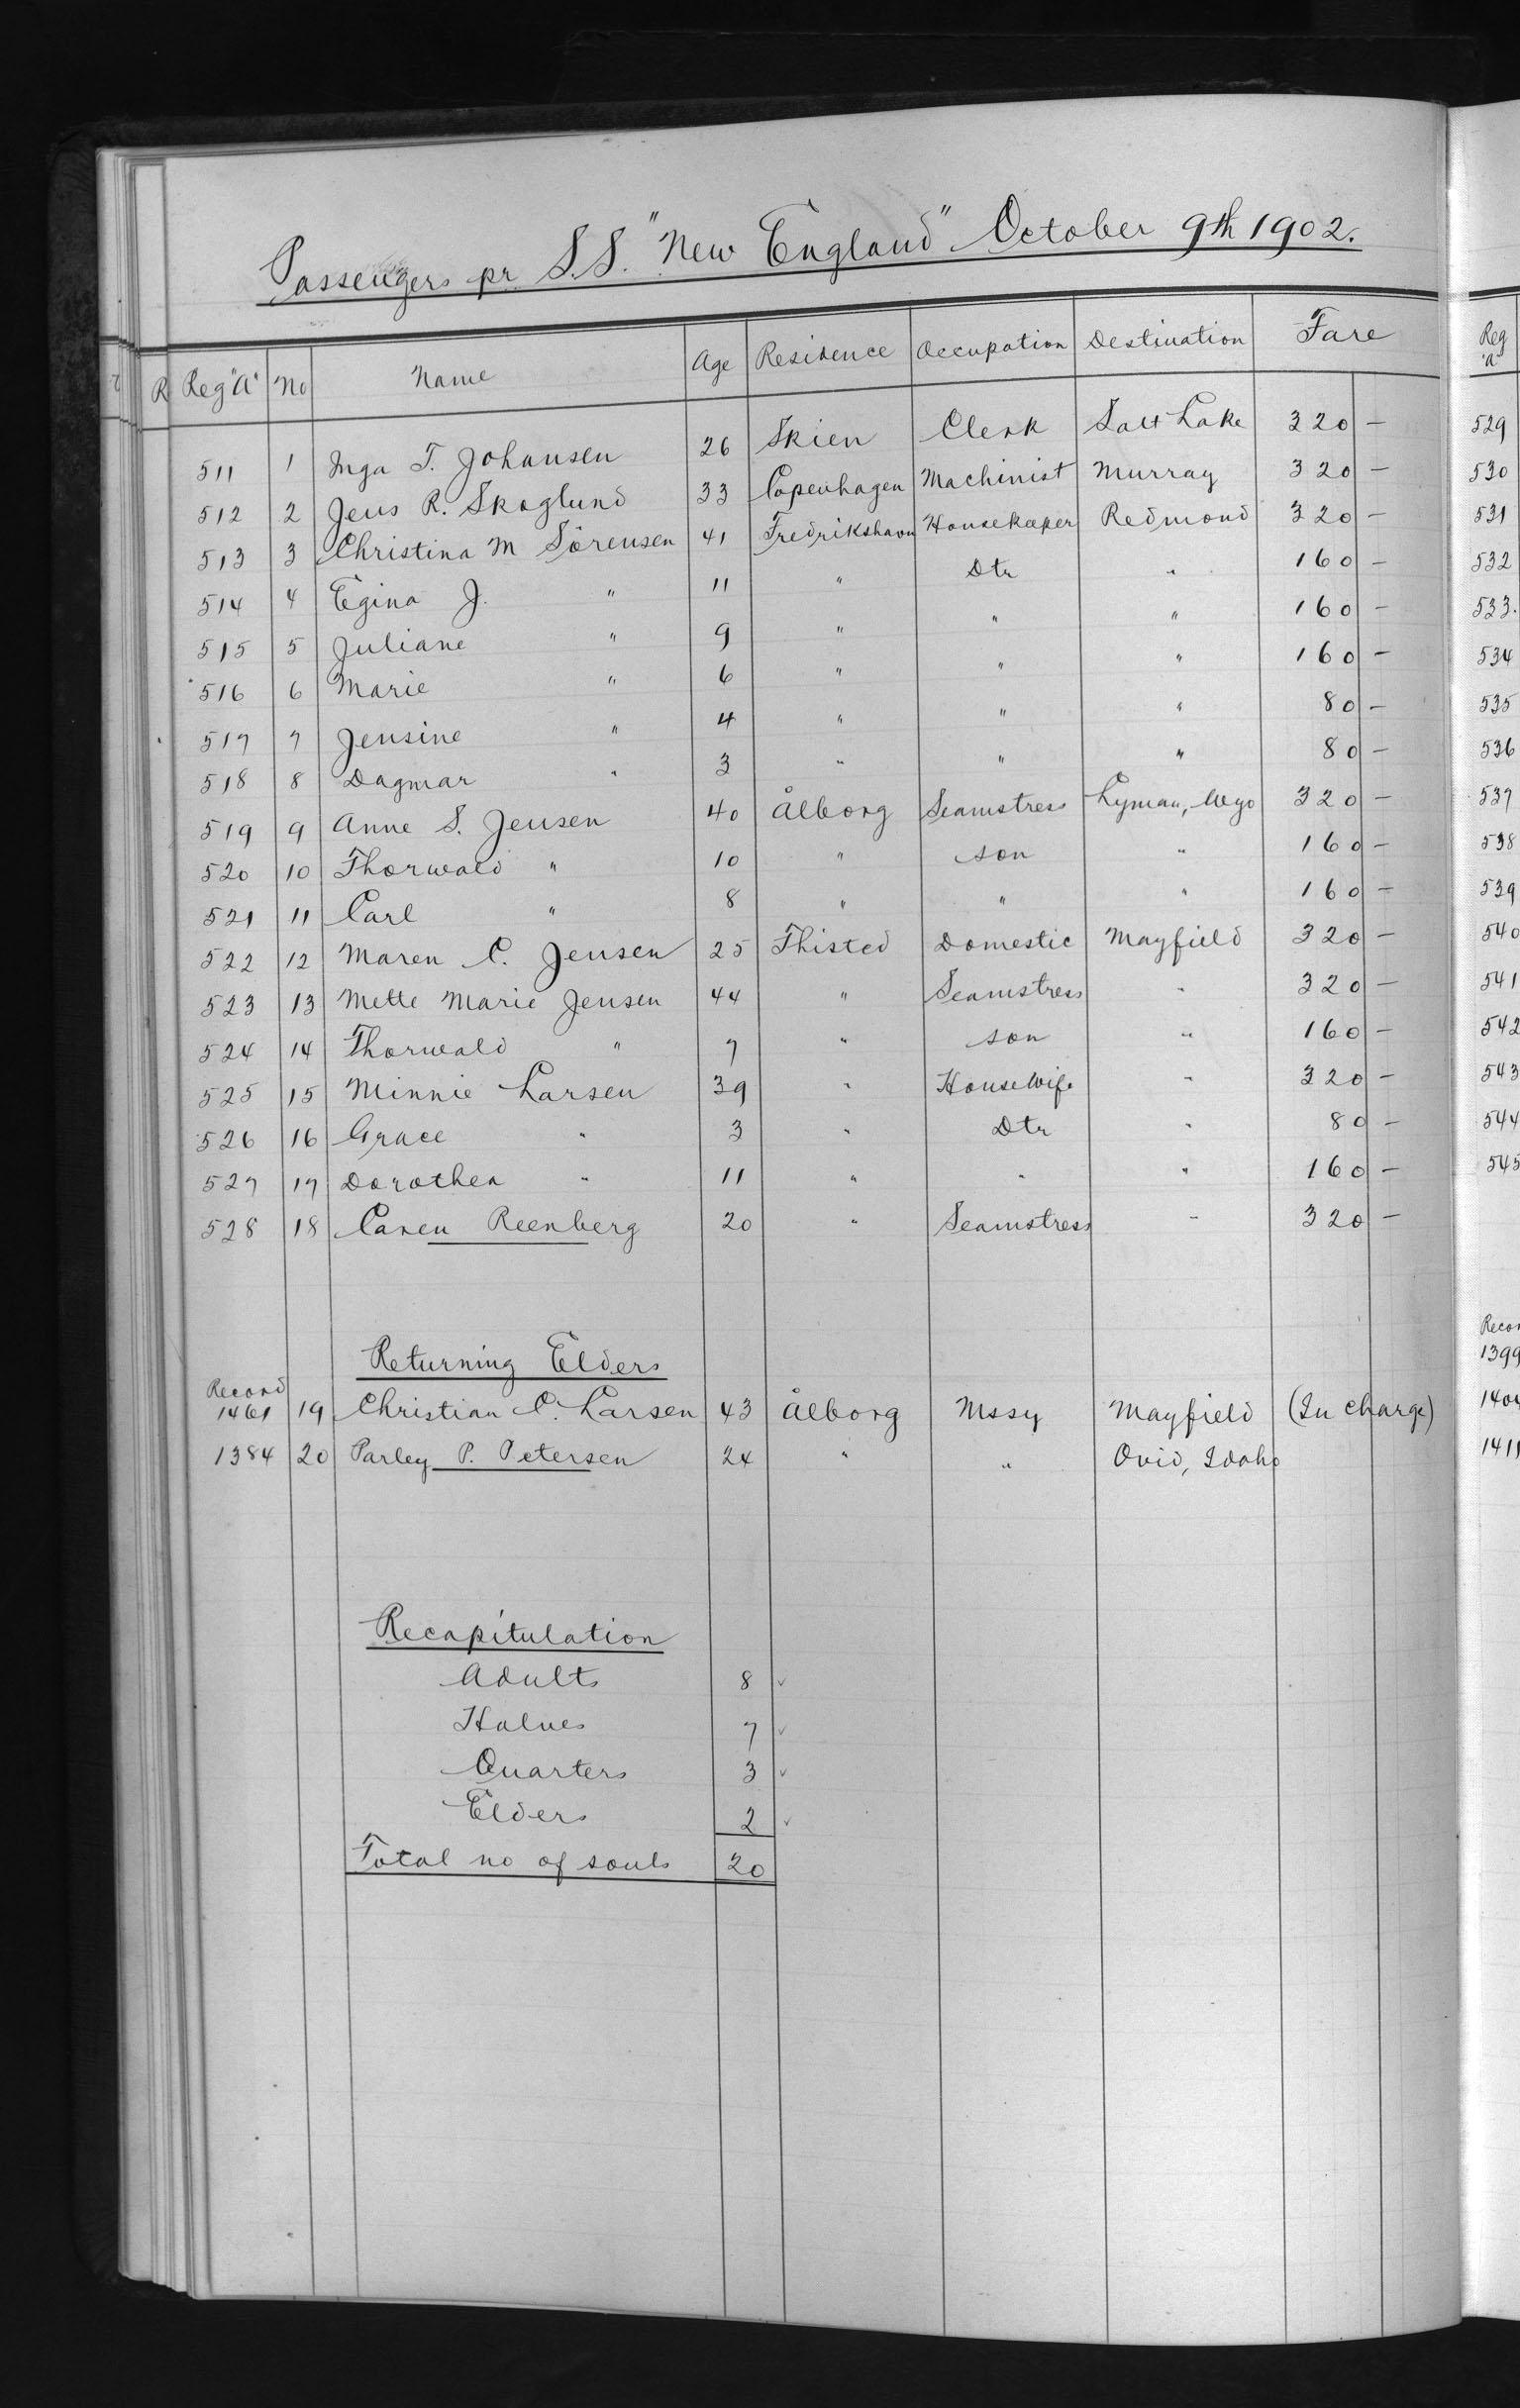 Passengers pr. S.S. "New England" October 9th 1902.
Reg "A" No Name Age Residence Occupation Destination Fare
511 1 Inga T. Johansen 26 Skien Clerk Salt Lake 320 –
512 2 Jens R. Skoglund 33 Copenhagen Machinist Murray 320 –
513 3 Christina M Sörensen 41 Fredrikshavn Housekeeper Redmond 320 –
514 4 Egina J. " 11 " Dtr " 160 –
515 5 Juliane " 9 " " " 160 –
516 6 Marie " 6 " " " 160 –
517 7 Jensine " 4 " " " 80 –
518 8 Dagmar " 3 " " " 80 –
519 9 Anne S. Jensen 40 Ålborg Seamstress Lyman, Wyo 320 –
520 10 Thorwald " 10 " son " 160 –
521 11 Carl " 8 " " " 160 –
522 12 Maren C. Jensen 25 Thisted Domestic Mayfield 320 –
523 13 Mette Marie Jensen 44 " Seamstress " 320 –
524 14 Thorwald " 7 " son " 160 –
525 15 Minnie Larsen 39 " HouseWife " 320 –
526 16 Grace " 3 " Dtr " 80 –
527 17 Dorothea " 11 " " " 160 –
528 18 Caren Reenberg 20 " Seamstress " 320 –
Returning Elders
Record
1461 19 Christian C. Larsen 43 Ålborg Mssy Mayfield (In charge)
1384 20 Parley P. Petersen 24 " " Ovid, Idaho
Recapitulation
Adults 8 ✓
Halves 7 ✓
Quarters 3 ✓
Elders 2 ✓
Total no of souls 20
R
Reg
"A"
529
530
531
532
533.
534
535
536
537
538
539
540
541
542
543
544
545
1399
1404
1411